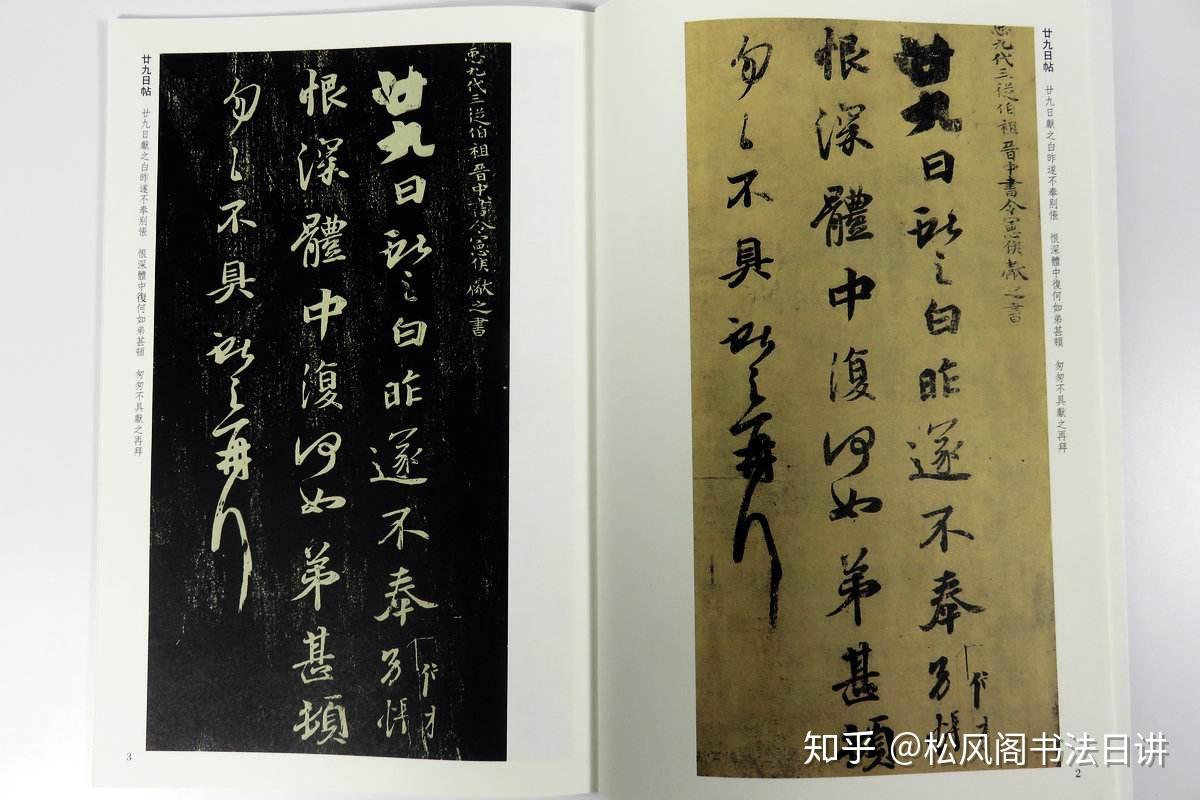 廿九日帖 廿九日獻之白昨遂不奉別悵 恨深體中復何如弟甚頓 匆匆不具獻之再拜
九代三從伯祖晉中書令憲侯獻之書
廿九日獻之白昨遂不奉別悵
恨深體中復何如弟甚頓
匆匆不具獻之再拜
2
九代三從伯祖晉中書令憲侯獻之書
廿九日獻之白昨遂不奉別悵
恨深體中復何如弟甚頓
匆匆不具獻之再拜
廿九日帖 廿九日獻之白昨遂不奉別悵 恨深體中復何如弟甚頓 匆匆不具獻之再拜
3
知乎 @松风阁书法日讲